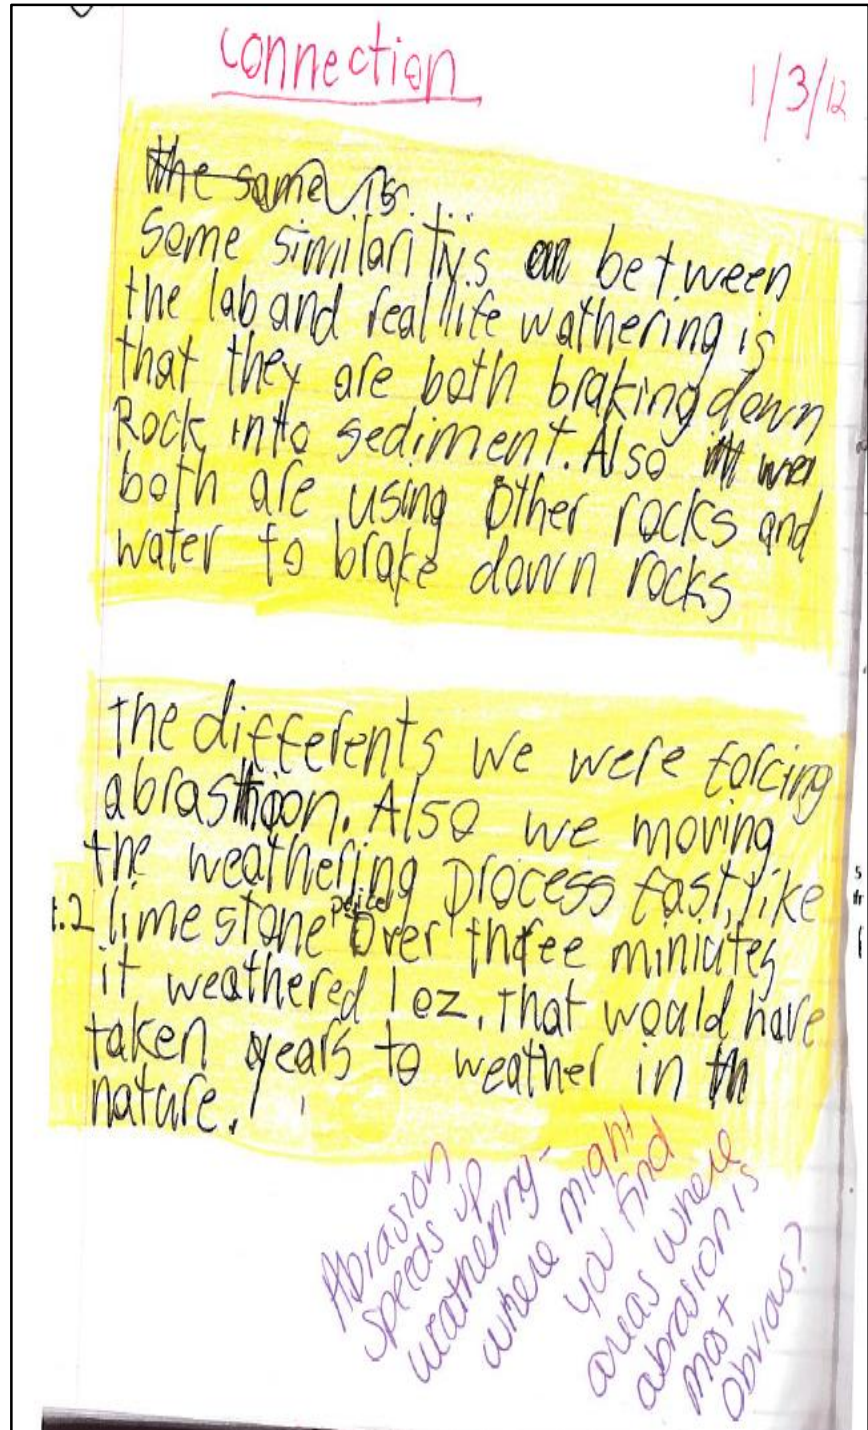 connection
1/3/12
the same is
Some similaritys between
the lab and real life wathering is
that they are both braking down
Rock into sediment. Also we
both are using other rocks and
water to brake down rocks
the differents we were forcing
abrasion. Also we moving
the weathering process fast, like
lime stone over three miniutes
it weathered 1 oz. that would have
taken years to weather in
nature.
Abrasion
speeds up
weathering-
where might
you find
areas where
abrasion is
most
obvious?